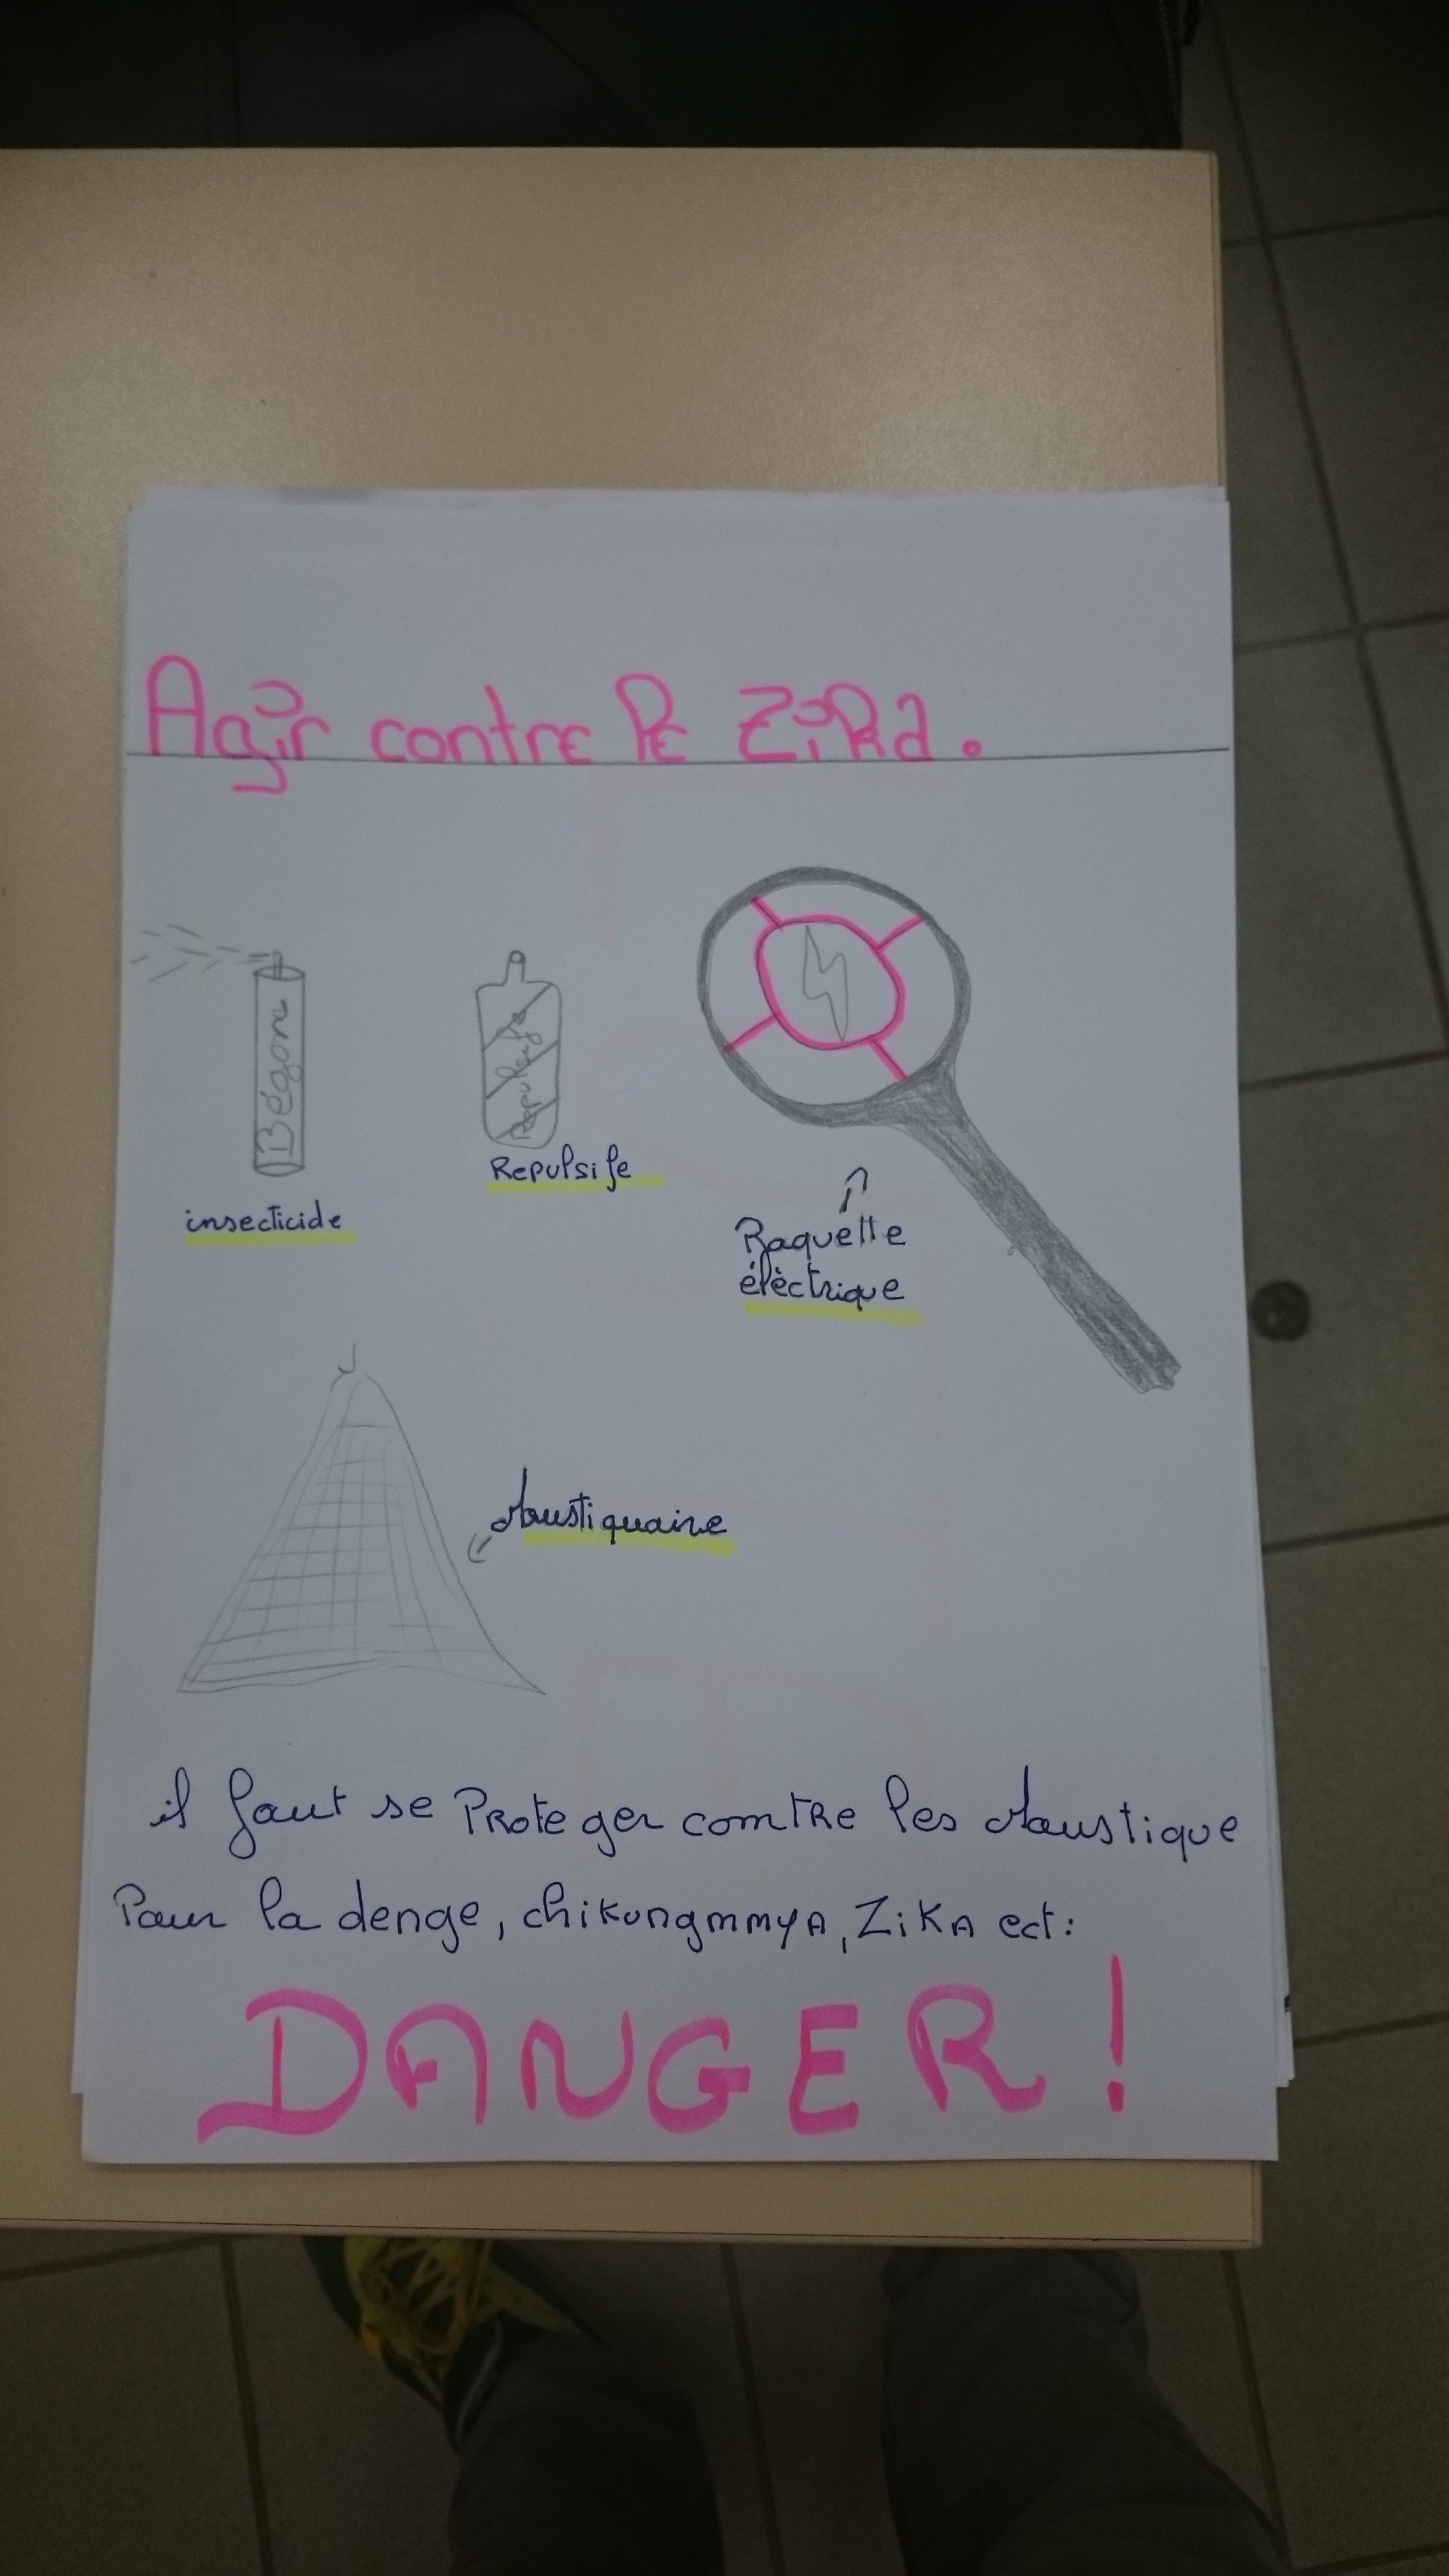 Agir contre le Zika.
Bégon
Repulsife
Repulsife
insecticide
Raquelle
élèctrique
Moustiquaire
il faut se Proteger contre les Moustique
Pour la denge, chikungmmya, Zika ect:
DANGER!